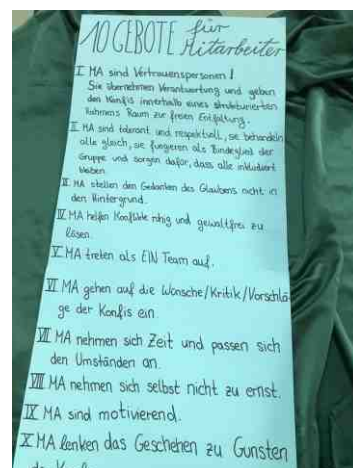 10 GEBOTE für
Mitarbeiter
I MA sind Vertrauenspersonen!
Sie übernehmen Verantwortung und geben
den Konfis innerhalb eines strukturierten
Rahmens Raum zur freien Entfaltung.
II MA sind tolerant und respektvoll, sie behandeln
alle gleich, sie fungieren als Bindeglied der
Gruppe und sorgen dafür, dass alle inkludiert
bleiben.
III MA stellen den Gedanken des Glaubens nicht in
den Hintergrund.
IV MA helfen Konflikte ruhig und gewaltfrei zu
lösen.
V MA treten als EIN Team auf.
VI MA gehen auf die Wünsche/Kritik/Vorschlä-
ge der Konfis ein.
VII MA nehmen sich Zeit und passen sich
den Umständen an.
VIII MA nehmen sich selbst nicht zu ernst.
IX MA sind motivierend.
X MA lenken das Geschehen zu Gunsten